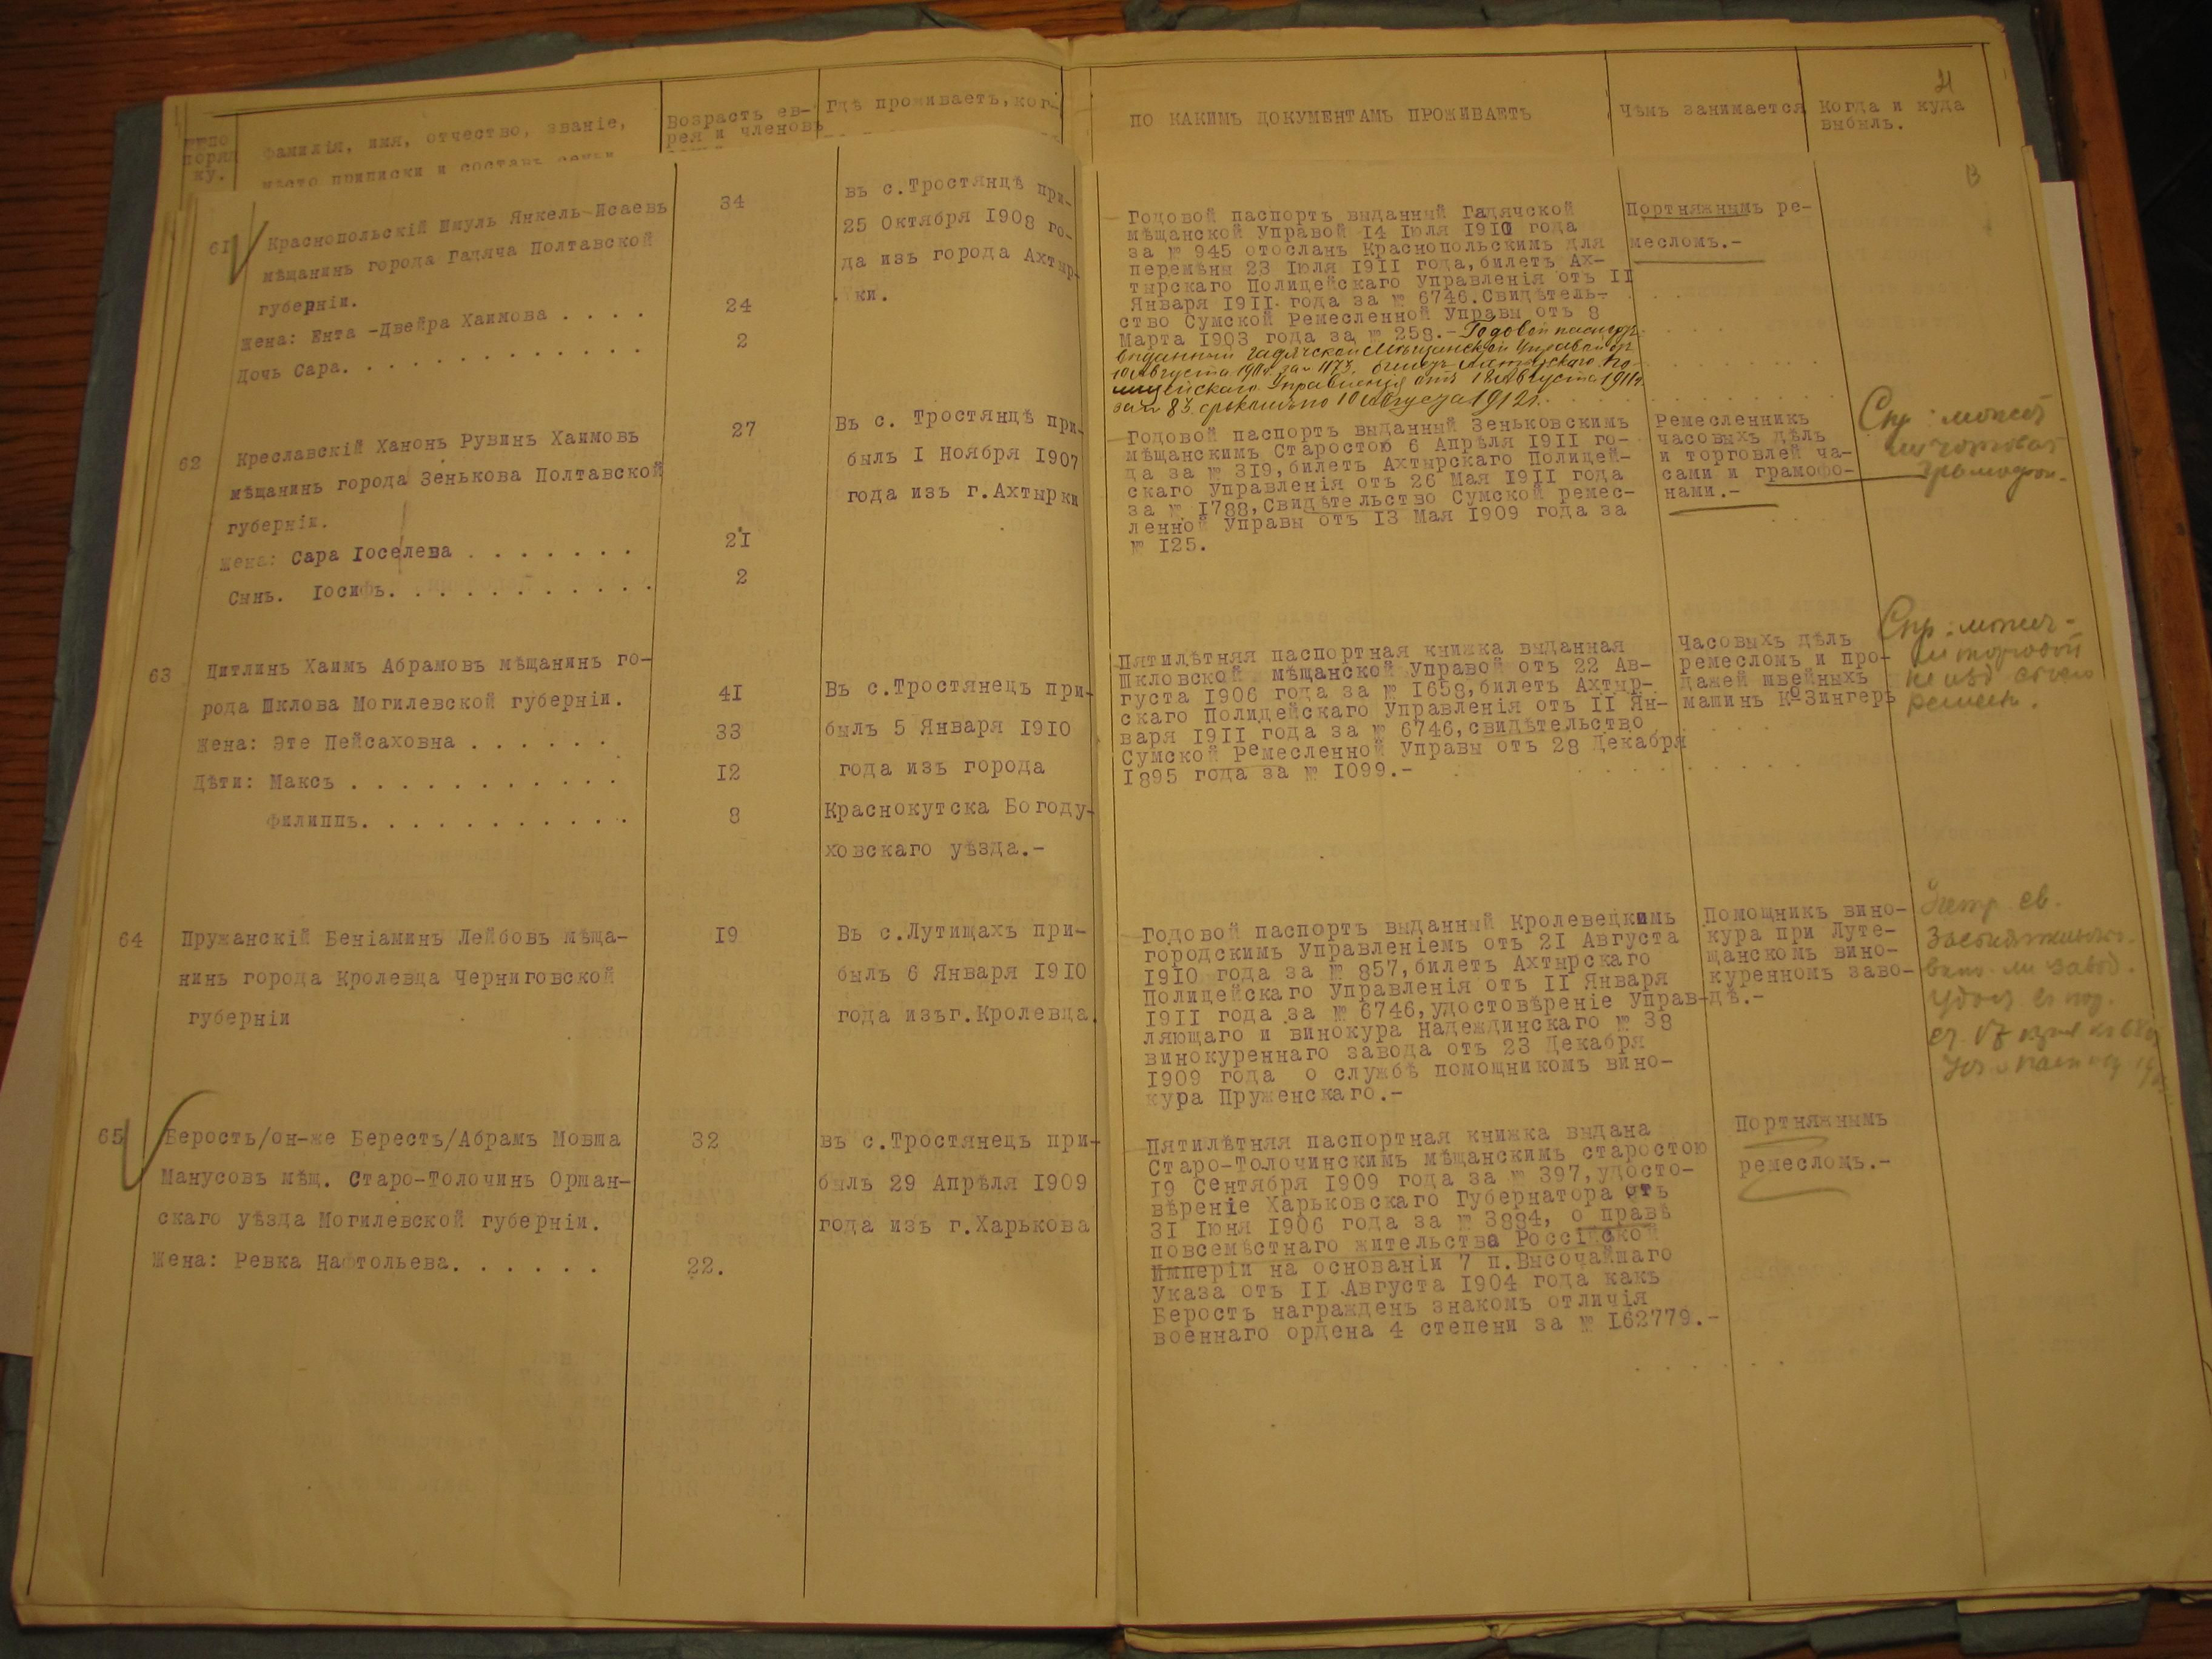 № по
поряд
ку.
фамилія, имя, отчество, званіе,
мѣсто приписки и составъ семьи
Возрастъ ев-
рея и членовъ
Гдѣ проживаетъ, ког-
61
Краснопольскій Шмуль Янкель-Исаевъ
мѣщанинъ города Гадяча Полтавской
губерніи.
Жена: Ента -Двейра Хаимова . . . .
Дочь Сара. . . . . . . . . . . .
34
24
2
въ с.Тростянцѣ при-
25 Октября 1908 го-
да изъ города Ахтыр-
ки.
62
Креславскій Ханонъ Рувинъ Хаимовъ
мѣщанинъ города Зенькова Полтавской
губерніи.
Жена: Сара Іоселева . . . . . . .
Сынъ. Іосифъ. . . . . . . . . . . .
27
21
2
Въ с. Тростянцѣ при-
былъ I Ноября 1907
года изъ г.Ахтырки
63
Цитлинъ Хаимъ Абрамовъ мѣщанинъ го-
рода Шклова Могилевской губерніи.
Жена: Эте Пейсаховна . . . . . .
Дѣти: Максъ . . . . . . . . . . .
Филиппъ. . . . . . . . . . . .
41
33
12
8
Въ с.Тростянецъ при-
былъ 5 Января 1910
года изъ города
Краснокутска Богоду-
ховскаго уѣзда.-
64
Пружанскій Беніаминъ Лейбовъ мѣща-
нинъ города Кролевца Черниговской
губерніи
19
Въ с.Лутищахъ при-
былъ 6 Января 1910
года изъг.Кролевца.
65
Берость/он-же Бересть/Абрамъ Мовша
Манусовъ мѣщ. Старо-Толочинъ Оршан-
скаго уѣзда Могилевской губерніи.
Жена: Ревка Нафтольева. . . . . .
32
22.
въ с.Тростянецъ при-
былъ 29 Апрѣля 1909
года изъ г.Харькова
21
ПО КАКИМЪ ДОКУМЕНТАМЪ ПРОЖИВАЕТЪ
Чѣмъ занимается
Когда и куда
выбылъ.
Годовой паспортъ выданный Гадячской
мѣщанской Управой 14 Іюля 1910 года
за № 945 отосланъ Краснопольскимъ для
перемѣны 23 Іюля 1911 года,билетъ Ах-
тырскаго Полицейскаго Управленія отъ II
Января 1911 года за № 6746.Свидѣтель-
ство Сумской Ремесленной Управы отъ 8
Марта 1903 года за № 258.- Годовой паспорт
выданный Гадячской Мѣщанской Управой от
10 Августа 1911 г. за № 1173, билетъ Ахтырскаго По-
лицейскаго Управленія отъ 18 Августа 1911 г.
за № 83 срокомъ по 10 Августа 1912 г.
Портняжнымъ ре-
месломъ.-
Годовой паспортъ выданный Зеньковскимъ
мѣщанскимъ Старостою 6 Апрѣля 1911 го-
да за № 319,билетъ Ахтырскаго Полицей-
скаго Управленія отъ 26 Мая 1911 года
за № 1788,Свидѣтельство Сумской ремес-
ленной Управы отъ 13 Мая 1909 года за
№ 125.
Ремесленникъ
часовыхъ дѣлъ
и торговлей ча-
сами и грамофо-
нами.-
Спр: можетъ
ли торговать
грамофон.
Пятилѣтняя паспортная книжка выданная
Шкловской мѣщанской Управой отъ 22 Ав-
густа 1906 года за № 1658,билетъ Ахтыр-
скаго Полицейскаго Управленія отъ II Ян-
варя 1911 года за № 6746,свидѣтельство
Сумской Ремесленной Управы отъ 28 Декабря
1895 года за № 1099.-
Часовыхъ дѣлъ
ремесломъ и про-
дажей швейныхъ
машинъ Ко Зингеръ
Спр: может
ли торговать
не изд. своего
ремесл.
Годовой паспортъ выданный Кролевецкимъ
городскимъ Управленіемъ отъ 21 Августа
1910 года за № 857,билетъ Ахтырскаго
Полицейскаго Управленія отъ II Января
1911 года за № 6746,удостовѣреніе Управ-
ляющаго и винокура Надеждинскаго № 38
винокуреннаго завода отъ 23 Декабря
1909 года о службѣ помощникомъ вино-
кура Пруженскаго.-
Помощникъ вино-
кура при Луте-
щанскомъ вино-
куренномъ заво-
дѣ.-
Пятилѣтняя паспортная книжка выдана
Старо-Толочинскимъ мѣщанскимъ старостою
19 Сентября 1909 года за № 397,удосто-
вѣреніе Харьковскаго Губернатора отъ
31 Іюня 1906 года за № 3884, о правѣ
повсемѣстнаго жительства Россійской
Имперіи на основаніи 7 п.Высочайшаго
Указа отъ II Августа 1904 года какъ
Беростъ награжденъ знакомъ отличія
военнаго ордена 4 степени за № 162779.-
Портняжнымъ
ремесломъ.-